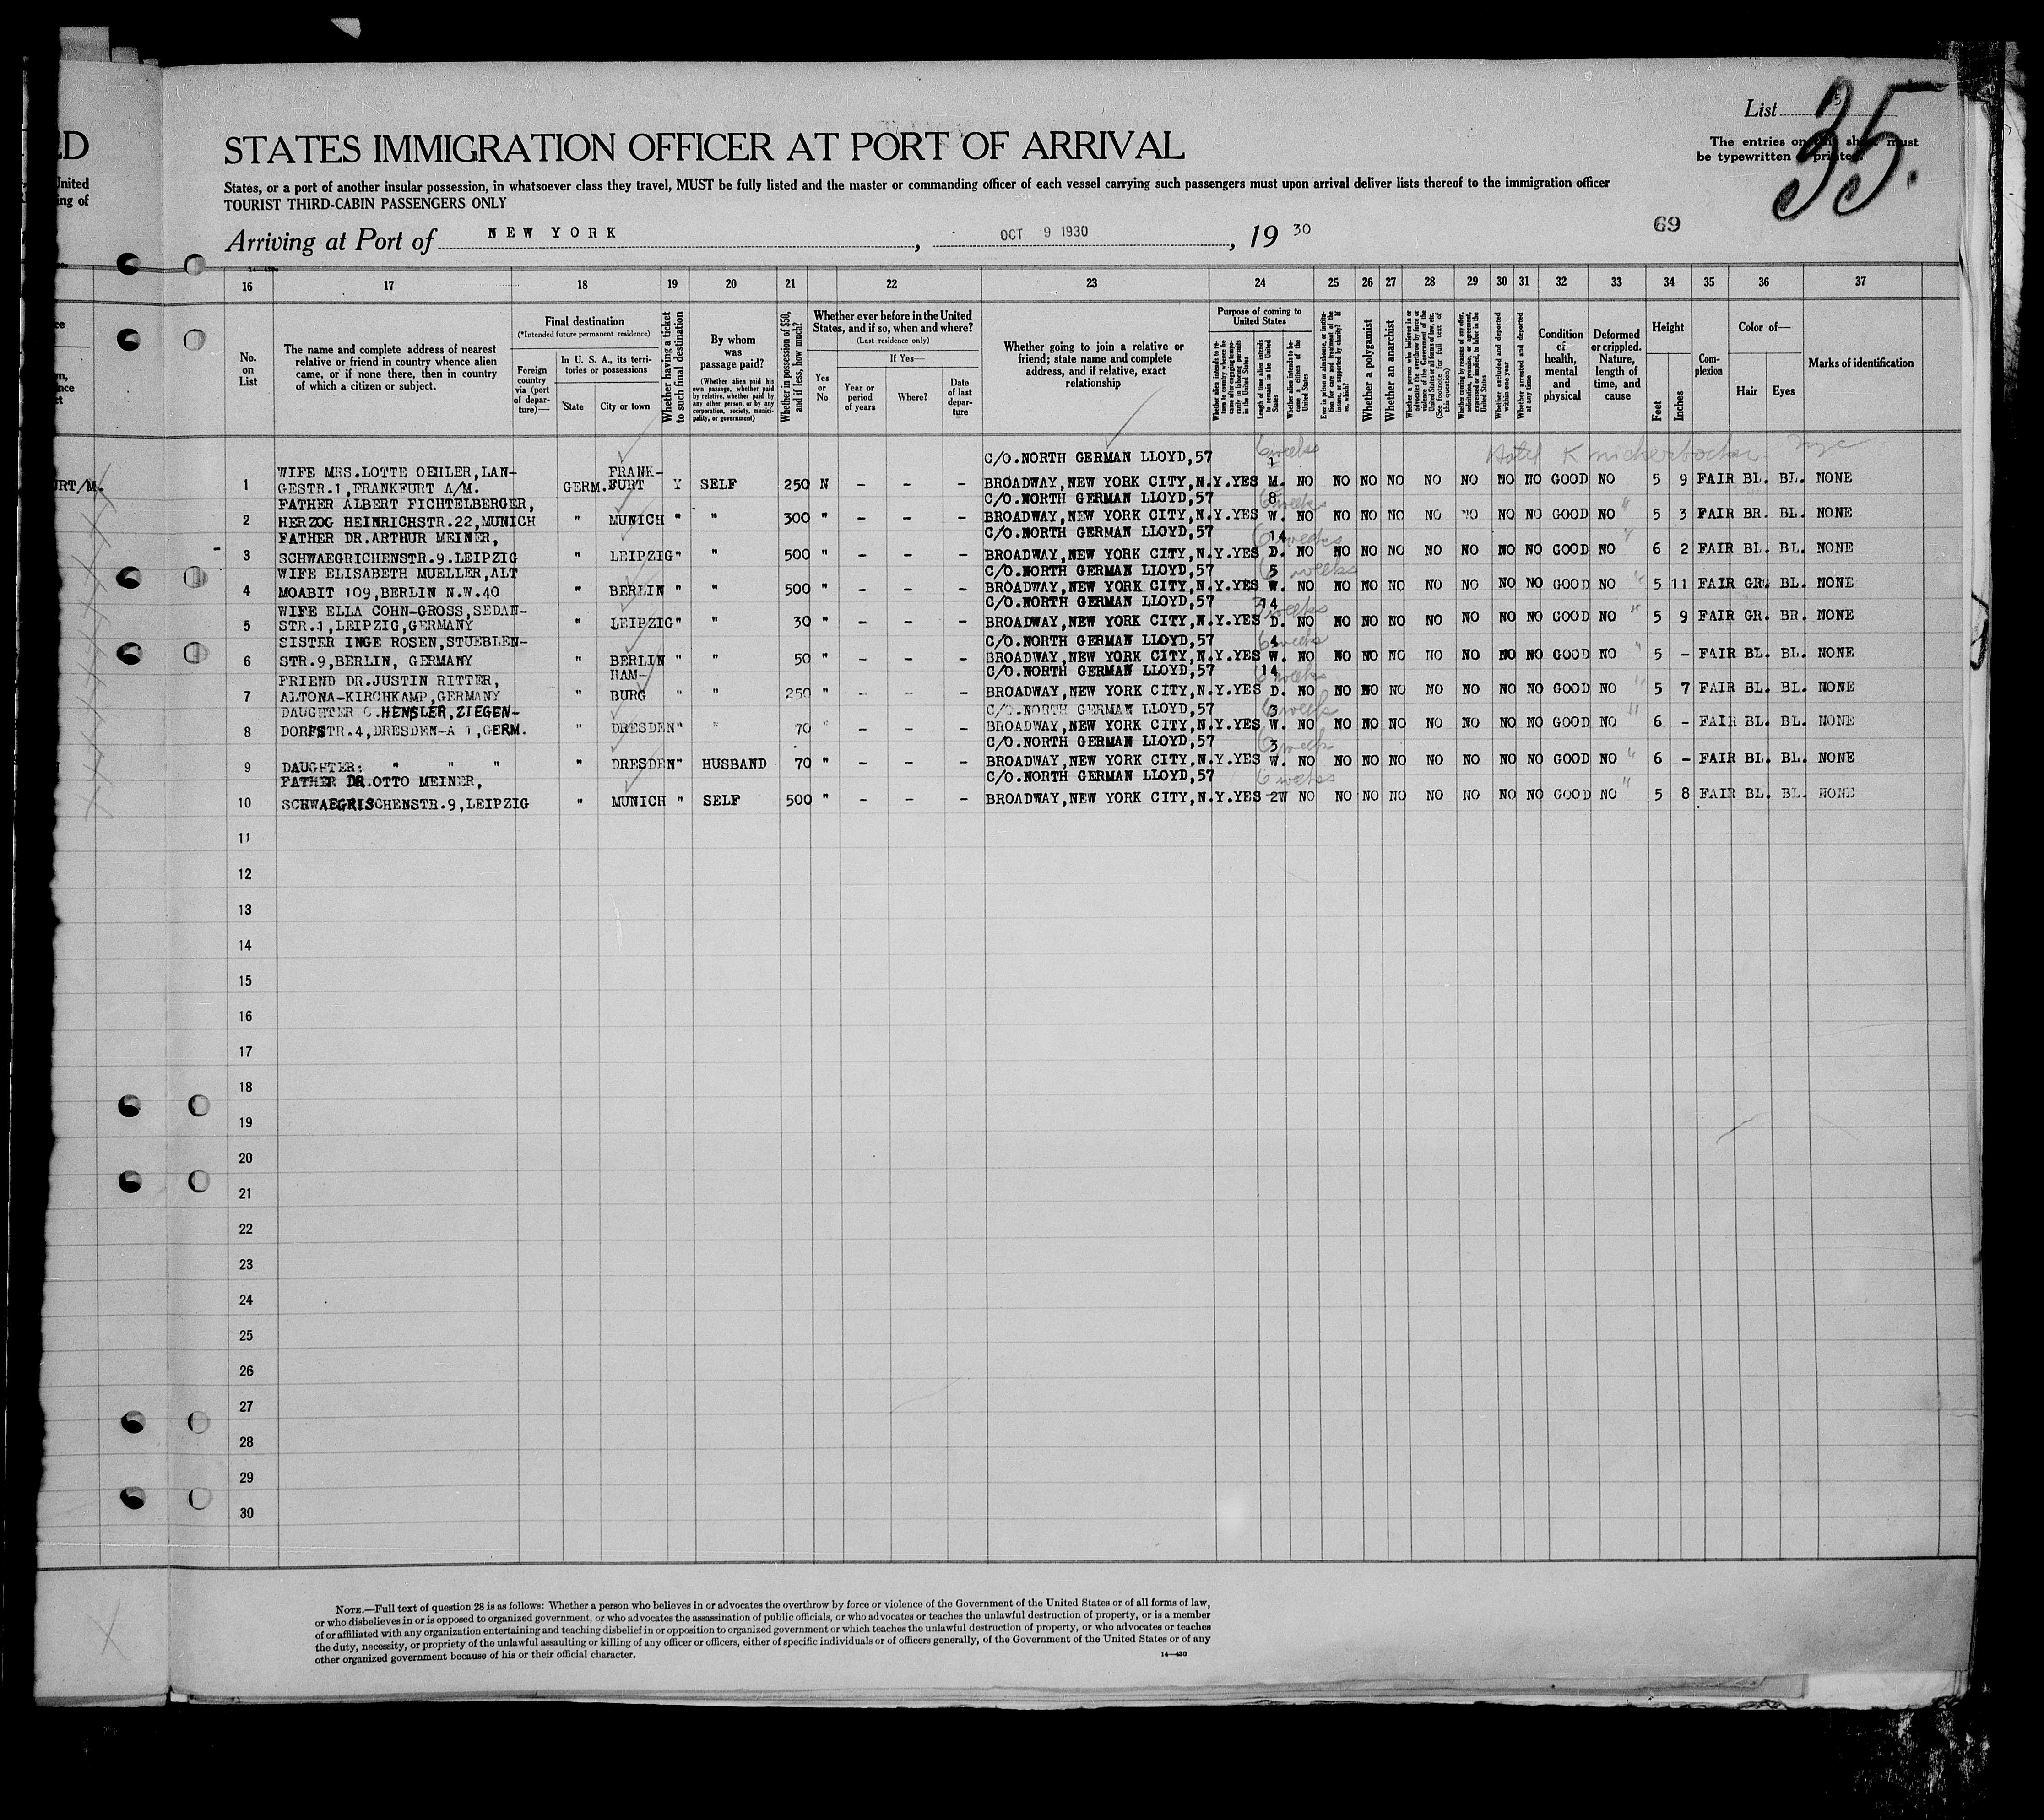 List
35.
The entries on this sheet must
be typewritten or printed.
STATES IMMIGRATION OFFICER AT PORT OF ARRIVAL
States, or a port of another insular possession, in whatsoever class they travel, MUST be fully listed and the master or commanding officer of each vessel carrying such passengers must upon arrival deliver lists thereof to the immigration officer
TOURIST THIRD-CABIN PASSENGERS ONLY
69
Arriving at Port of NEW YORK, OCT 9 1930, 19 30
16 17 18 19 20 21 22 23 24 25 26 27 28 29 30 31 32 33 34 35 36 37
No. on List
The name and complete address of nearest relative or friend in country whence alien came, or if none there, then in country of which a citizen or subject.
Final destination
(*Intended future permanent residence)
Foreign country via (port of departure)—
In U. S. A., its territories or possessions
State
City or town
Whether having a ticket to such final destination
By whom was passage paid?
(Whether alien paid his own passage, whether paid by relative, whether paid by any other person, or by any corporation, society, municipality, or government)
Whether in possession of $50, and if less, how much?
Whether ever before in the United States, and if so, when and where?
(Last residence only)
Yes or No
If Yes—
Year or period of years
Where?
Date of last departure
Whether going to join a relative or friend; state name and complete address, and if relative, exact relationship
Purpose of coming to United States
Length of time alien intends to remain in the United States
Whether alien intends to become a citizen of the United States
Whether a polygamist
Whether an anarchist
Whether excluded and deported within one year
Whether arrested and deported at any time
Condition of health, mental and physical
Deformed or crippled. Nature, length of time, and cause
Height
Feet
Inches
Complexion
Color of—
Hair
Eyes
Marks of identification
6 weeks Hotel Knickerbocker nyc
WIFE MRS.LOTTE OEHLER,LAN- FRANK- C/O.NORTH GERMAN LLOYD,57 1
1 GESTR.1,FRANKFURT A/M. GERM. FURT Y SELF 250 N - - - BROADWAY,NEW YORK CITY,N.Y. YES M. NO NO NO NO NO NO NO NO GOOD NO 5 9 FAIR BL. BL. NONE
FATHER ALBERT FICHTELBERGER, C/O.NORTH GERMAN LLOYD,57 8 6 weeks
2 HERZOG HEINRICHSTR.22,MUNICH " MUNICH " " 300 " - - - BROADWAY,NEW YORK CITY,N.Y. YES W. NO NO NO NO NO NO NO NO GOOD NO " 5 3 FAIR BR. BL. NONE
FATHER DR.ARTHUR MEINER, C/O.NORTH GERMAN LLOYD,57 14 6 weeks
3 SCHWAEGRICHENSTR.9.LEIPZIG " LEIPZIG " " 500 " - - - BROADWAY,NEW YORK CITY,N.Y. YES D. NO NO NO NO NO NO NO NO GOOD NO " 6 2 FAIR BL. BL. NONE
WIFE ELISABETH MUELLER,ALT C/O.NORTH GERMAN LLOYD,57 5 6 weeks
4 MOABIT 109,BERLIN N.W.40 " BERLIN " " 500 " - - - BROADWAY,NEW YORK CITY,N.Y. YES W. NO NO NO NO NO NO NO NO GOOD NO " 5 11 FAIR GR. BL. NONE
WIFE ELLA COHN-GROSS,SEDAN- C/O.NORTH GERMAN LLOYD,57 14 weeks
5 STR.1,LEIPZIG,GERMANY " LEIPZIG " " 30 " - - - BROADWAY,NEW YORK CITY,N.Y. YES D. NO NO NO NO NO NO NO NO GOOD NO " 5 9 FAIR GR. BR. NONE
SISTER INGE ROSEN,STUEBLEN- C/O.NORTH GERMAN LLOYD,57 4 6 weeks
6 STR.9,BERLIN, GERMANY " BERLIN " " 50 " - - - BROADWAY,NEW YORK CITY,N.Y. YES W. NO NO NO NO NO NO NO NO GOOD NO " 5 - FAIR BL. BL. NONE
FRIEND DR.JUSTIN RITTER, HAM- C/O.NORTH GERMAN LLOYD,57 14 6 weeks
7 ALTONA-KIRCHKAMP,GERMANY " BURG " " 250 " - - - BROADWAY,NEW YORK CITY,N.Y. YES D. NO NO NO NO NO NO NO NO GOOD NO " 5 7 FAIR BL. BL. NONE
DAUGHTER C.HENSLER,ZIEGEN- C/O.NORTH GERMAN LLOYD,57 3 6 weeks
8 DORFSTR.4,DRESDEN-A 1,GERM. " DRESDEN " " 70 " - - - BROADWAY,NEW YORK CITY,N.Y. YES W. NO NO NO NO NO NO NO NO GOOD NO " 6 - FAIR BL. BL. NONE
C/O.NORTH GERMAN LLOYD,57 3 6 weeks
9 DAUGHTER: " " " " DRESDEN " HUSBAND 70 " - - - BROADWAY,NEW YORK CITY,N.Y. YES W. NO NO NO NO NO NO NO NO GOOD NO " 6 - FAIR BL. BL. NONE
FATHER DR.OTTO MEINER, C/O.NORTH GERMAN LLOYD,57 6 weeks
10 SCHWAEGRISCHENSTR.9,LEIPZIG " MUNICH " SELF 500 " - - - BROADWAY,NEW YORK CITY,N.Y. YES 2W NO NO NO NO NO NO NO NO GOOD NO " 5 8 FAIR BL. BL. NONE
11
12
13
14
15
16
17
18
19
20
21
22
23
24
25
26
27
28
29
30
NOTE.—Full text of question 28 is as follows: Whether a person who believes in or advocates the overthrow by force or violence of the Government of the United States or of all forms of law,
or who disbelieves in or is opposed to organized government, or who advocates the assassination of public officials, or who advocates or teaches the unlawful destruction of property, or is a member
of or affiliated with any organization entertaining and teaching disbelief in or opposition to organized government or which teaches the unlawful destruction of property, or who advocates or teaches
the duty, necessity, or propriety of the unlawful assaulting or killing of any officer or officers, either of specific individuals or of officers generally, of the Government of the United States or of any
other organized government because of his or their official character.
14—430